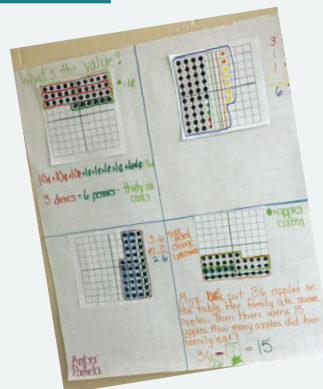 What's the value?
=1¢
10¢+10¢+10¢+1¢+1¢+1¢+1¢+1¢+1¢
3 dimes + 6 pennies = thirty six
cents
3
1
6
3 6
2 6
change
unknown
=apples
eaten
Mya put 36 apples on
the table. Her family ate some
apples. Then there were 15
apples. How many apples did her
family eat?
36 -
= 15
Amber
Pamela